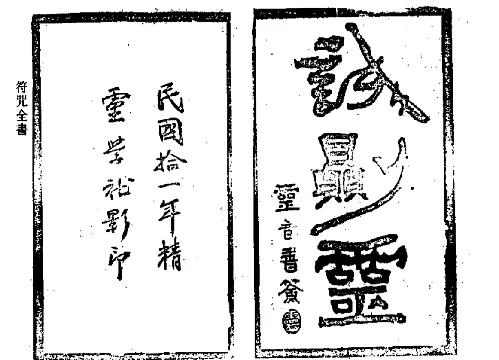 誠則靈
民國拾一年精
靈學社影印
符咒全書